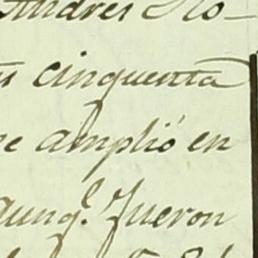 Andres Ro-
cinquenta
amplió en
aunq.e fueron